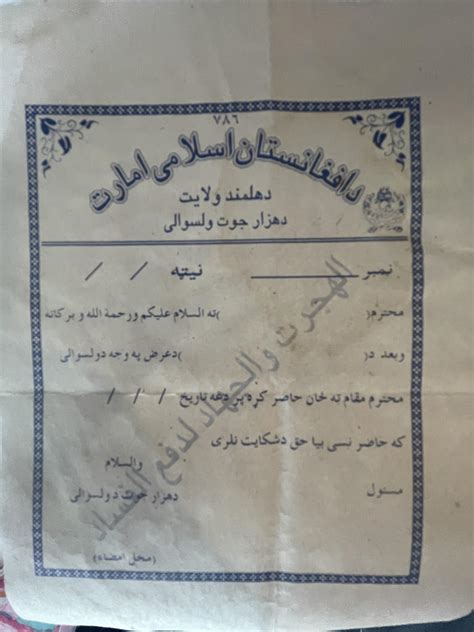 ۷۸۶
دافغانستان اسلامی امارت
دهلمند ولایت
دهزار جوت ولسوالی
نمبر ــــــــــــ نیټه / /
محترم( )ته السلام علیکم ورحمة الله و برکاته
وبعد د( )دعرض په وجه دولسوالی
محترم مقام ته ځان حاضر کړه پر دغه تاریخ / / /
که حاضر نسی بیا حق دشکایت نلری
والسلام
مسئول دهزار جوت دولسوالی
(محل امضاء)
الهجرت والجهاد لدفع الفساد